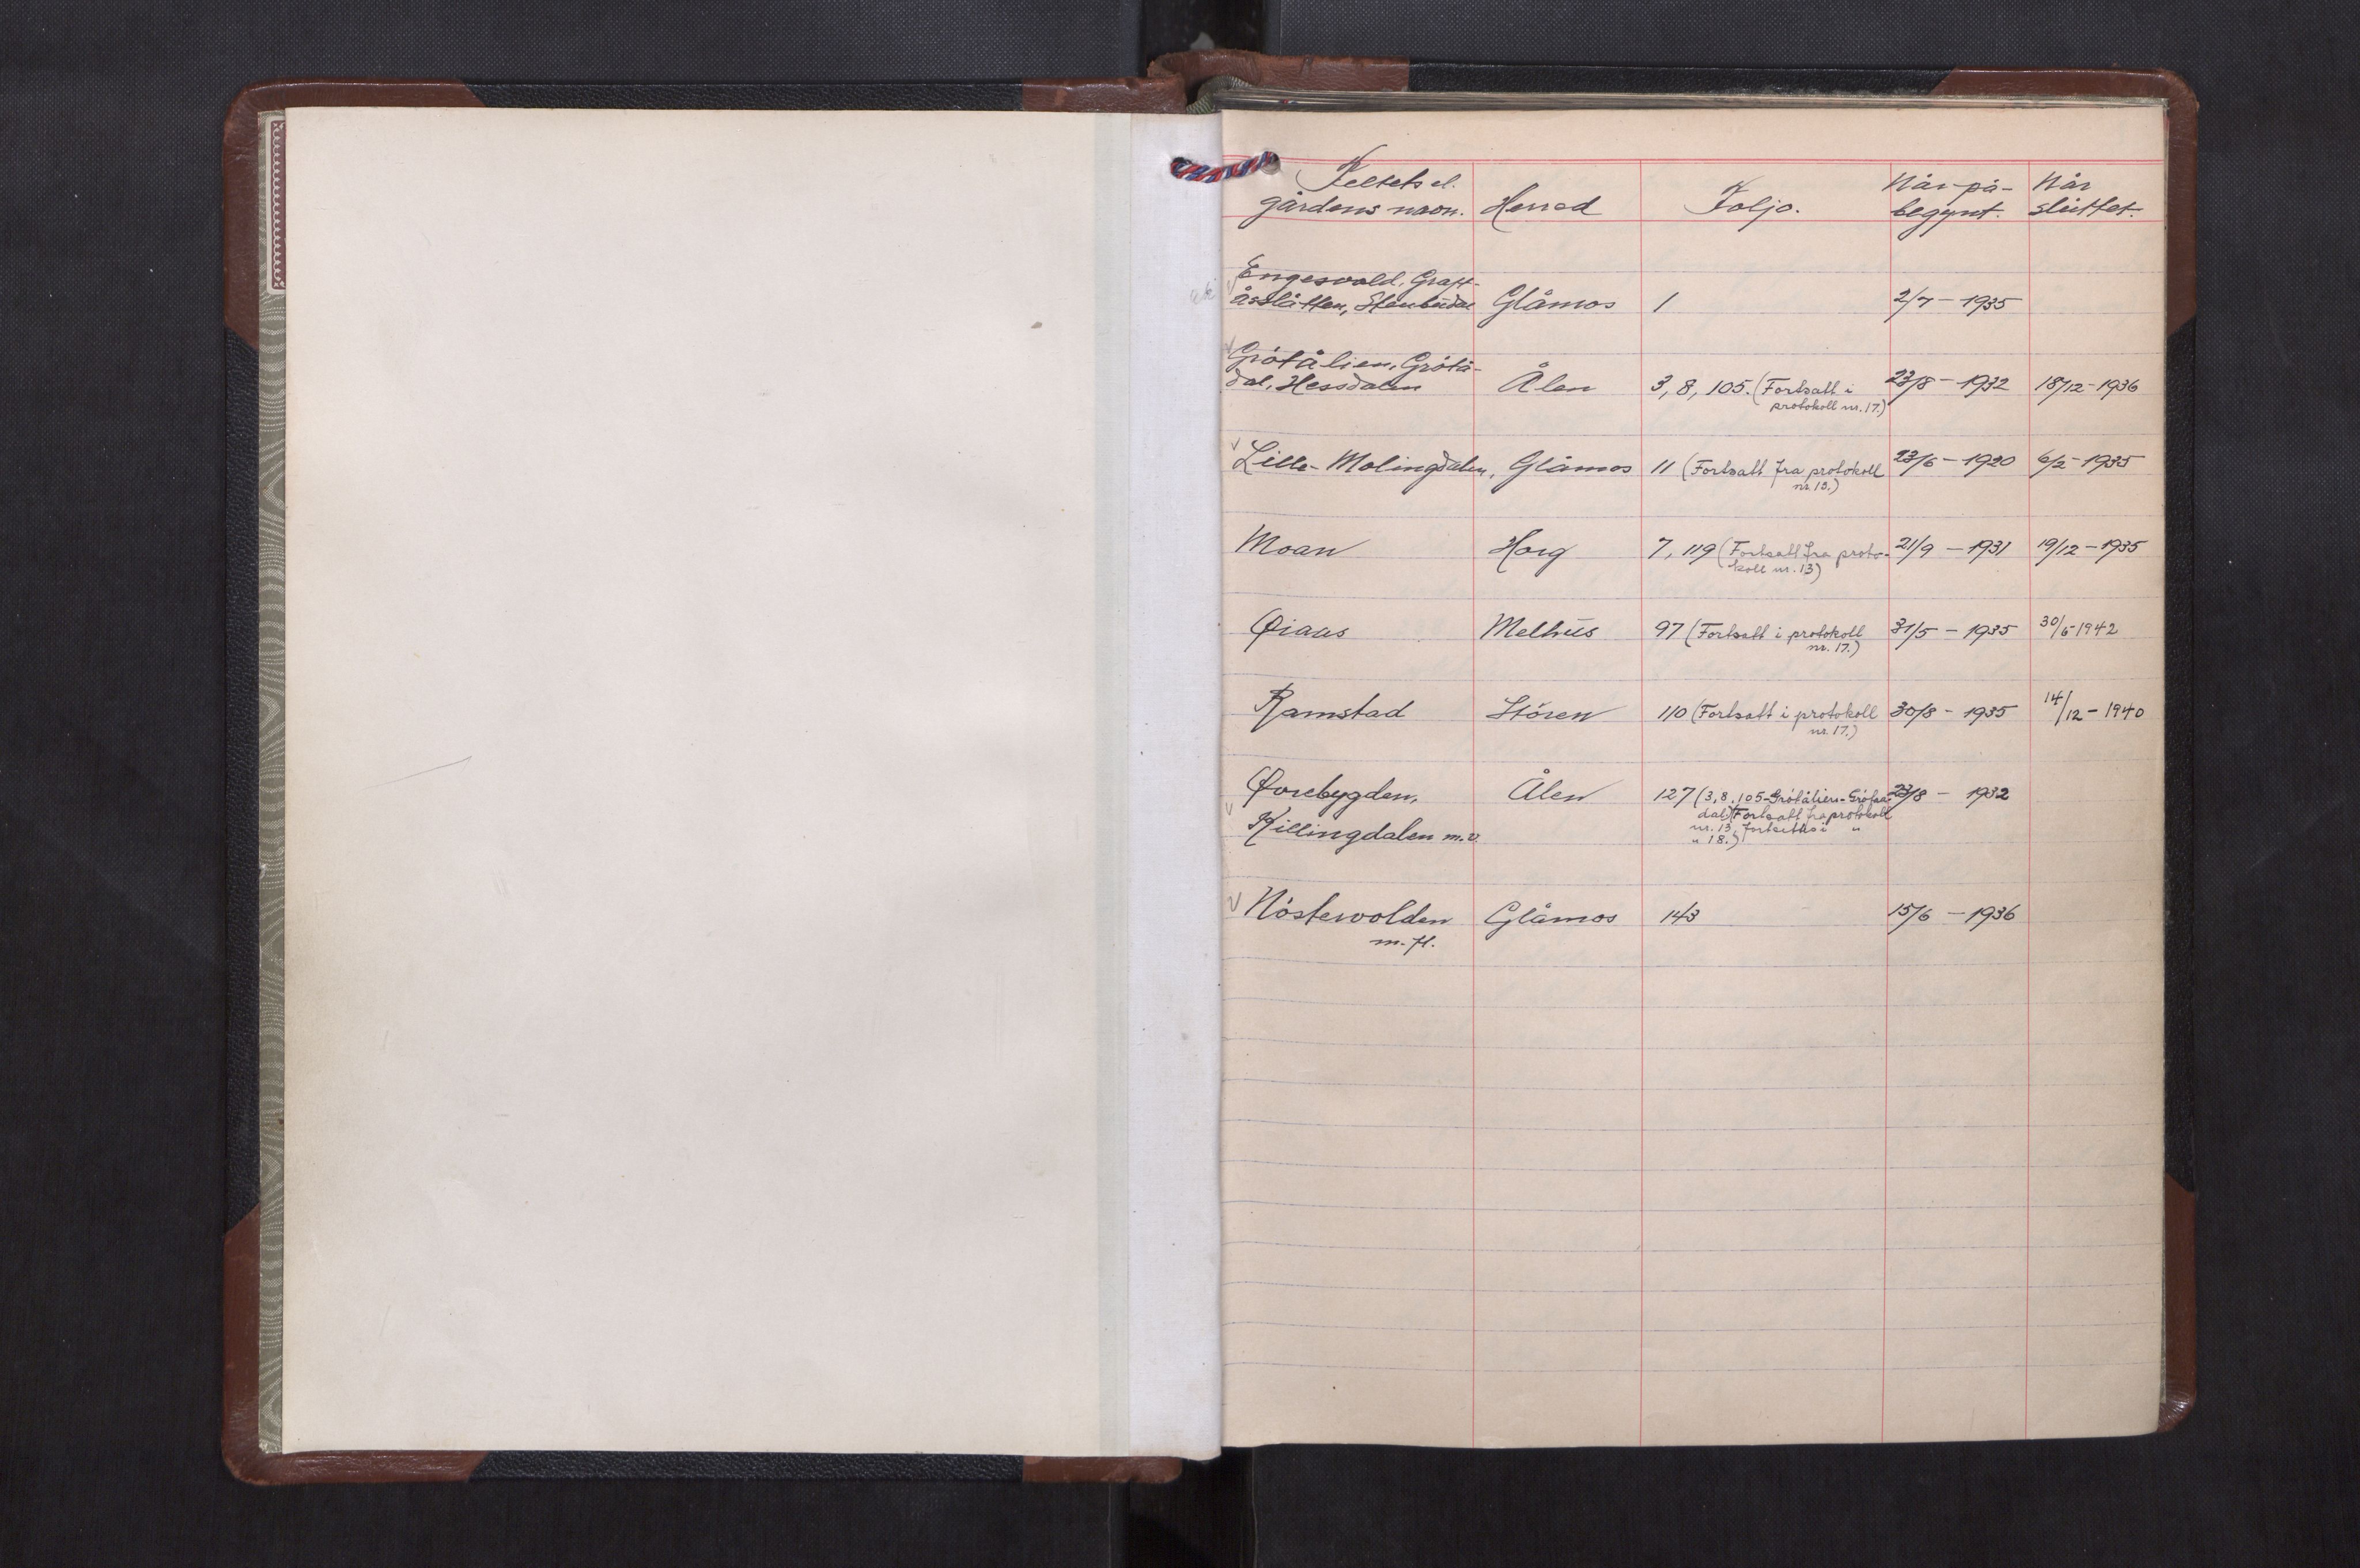 Feltets el. gårdens navn. Herred Foljo. Når på- begynt. Når sluttet.
Engesvold, Graft-
åsslåtten, Stenbudal Glåmos 1 2/7 - 1935
Grötålien, Gröta-
dal, Hessdalen Ålen 3, 8, 105. (Fortsatt i 23/8 - 1932 18/12 - 1936
protokoll nr. 17.)
Lille-Molingdalen, Glåmos 11 (Fortsatt fra protokoll 23/6 - 1920 6/2 - 1935
nr. 13.)
Moan Horg 7, 119 (Fortsatt fra proto- 21/9 - 1931 19/12 - 1935
koll nr. 13)
Øiaas Melhus 97 (Fortsatt i protokoll 31/5 - 1935 30/6 - 1942
nr. 17.)
Ramstad Stören 110 (Fortsatt i protokoll 30/8 - 1935 14/12 - 1940
nr. 17.)
Øvrebygden, Ålen 127 (3, 8, 105 - Grötålien - Grötaa- 23/8 - 1932
dal) (Fortsatt fra protokoll
Killingdalen m.v. nr. 13, fortsettes i "
" 18.)
Nöstervolden Glåmos 143 15/6 - 1936
m. fl.